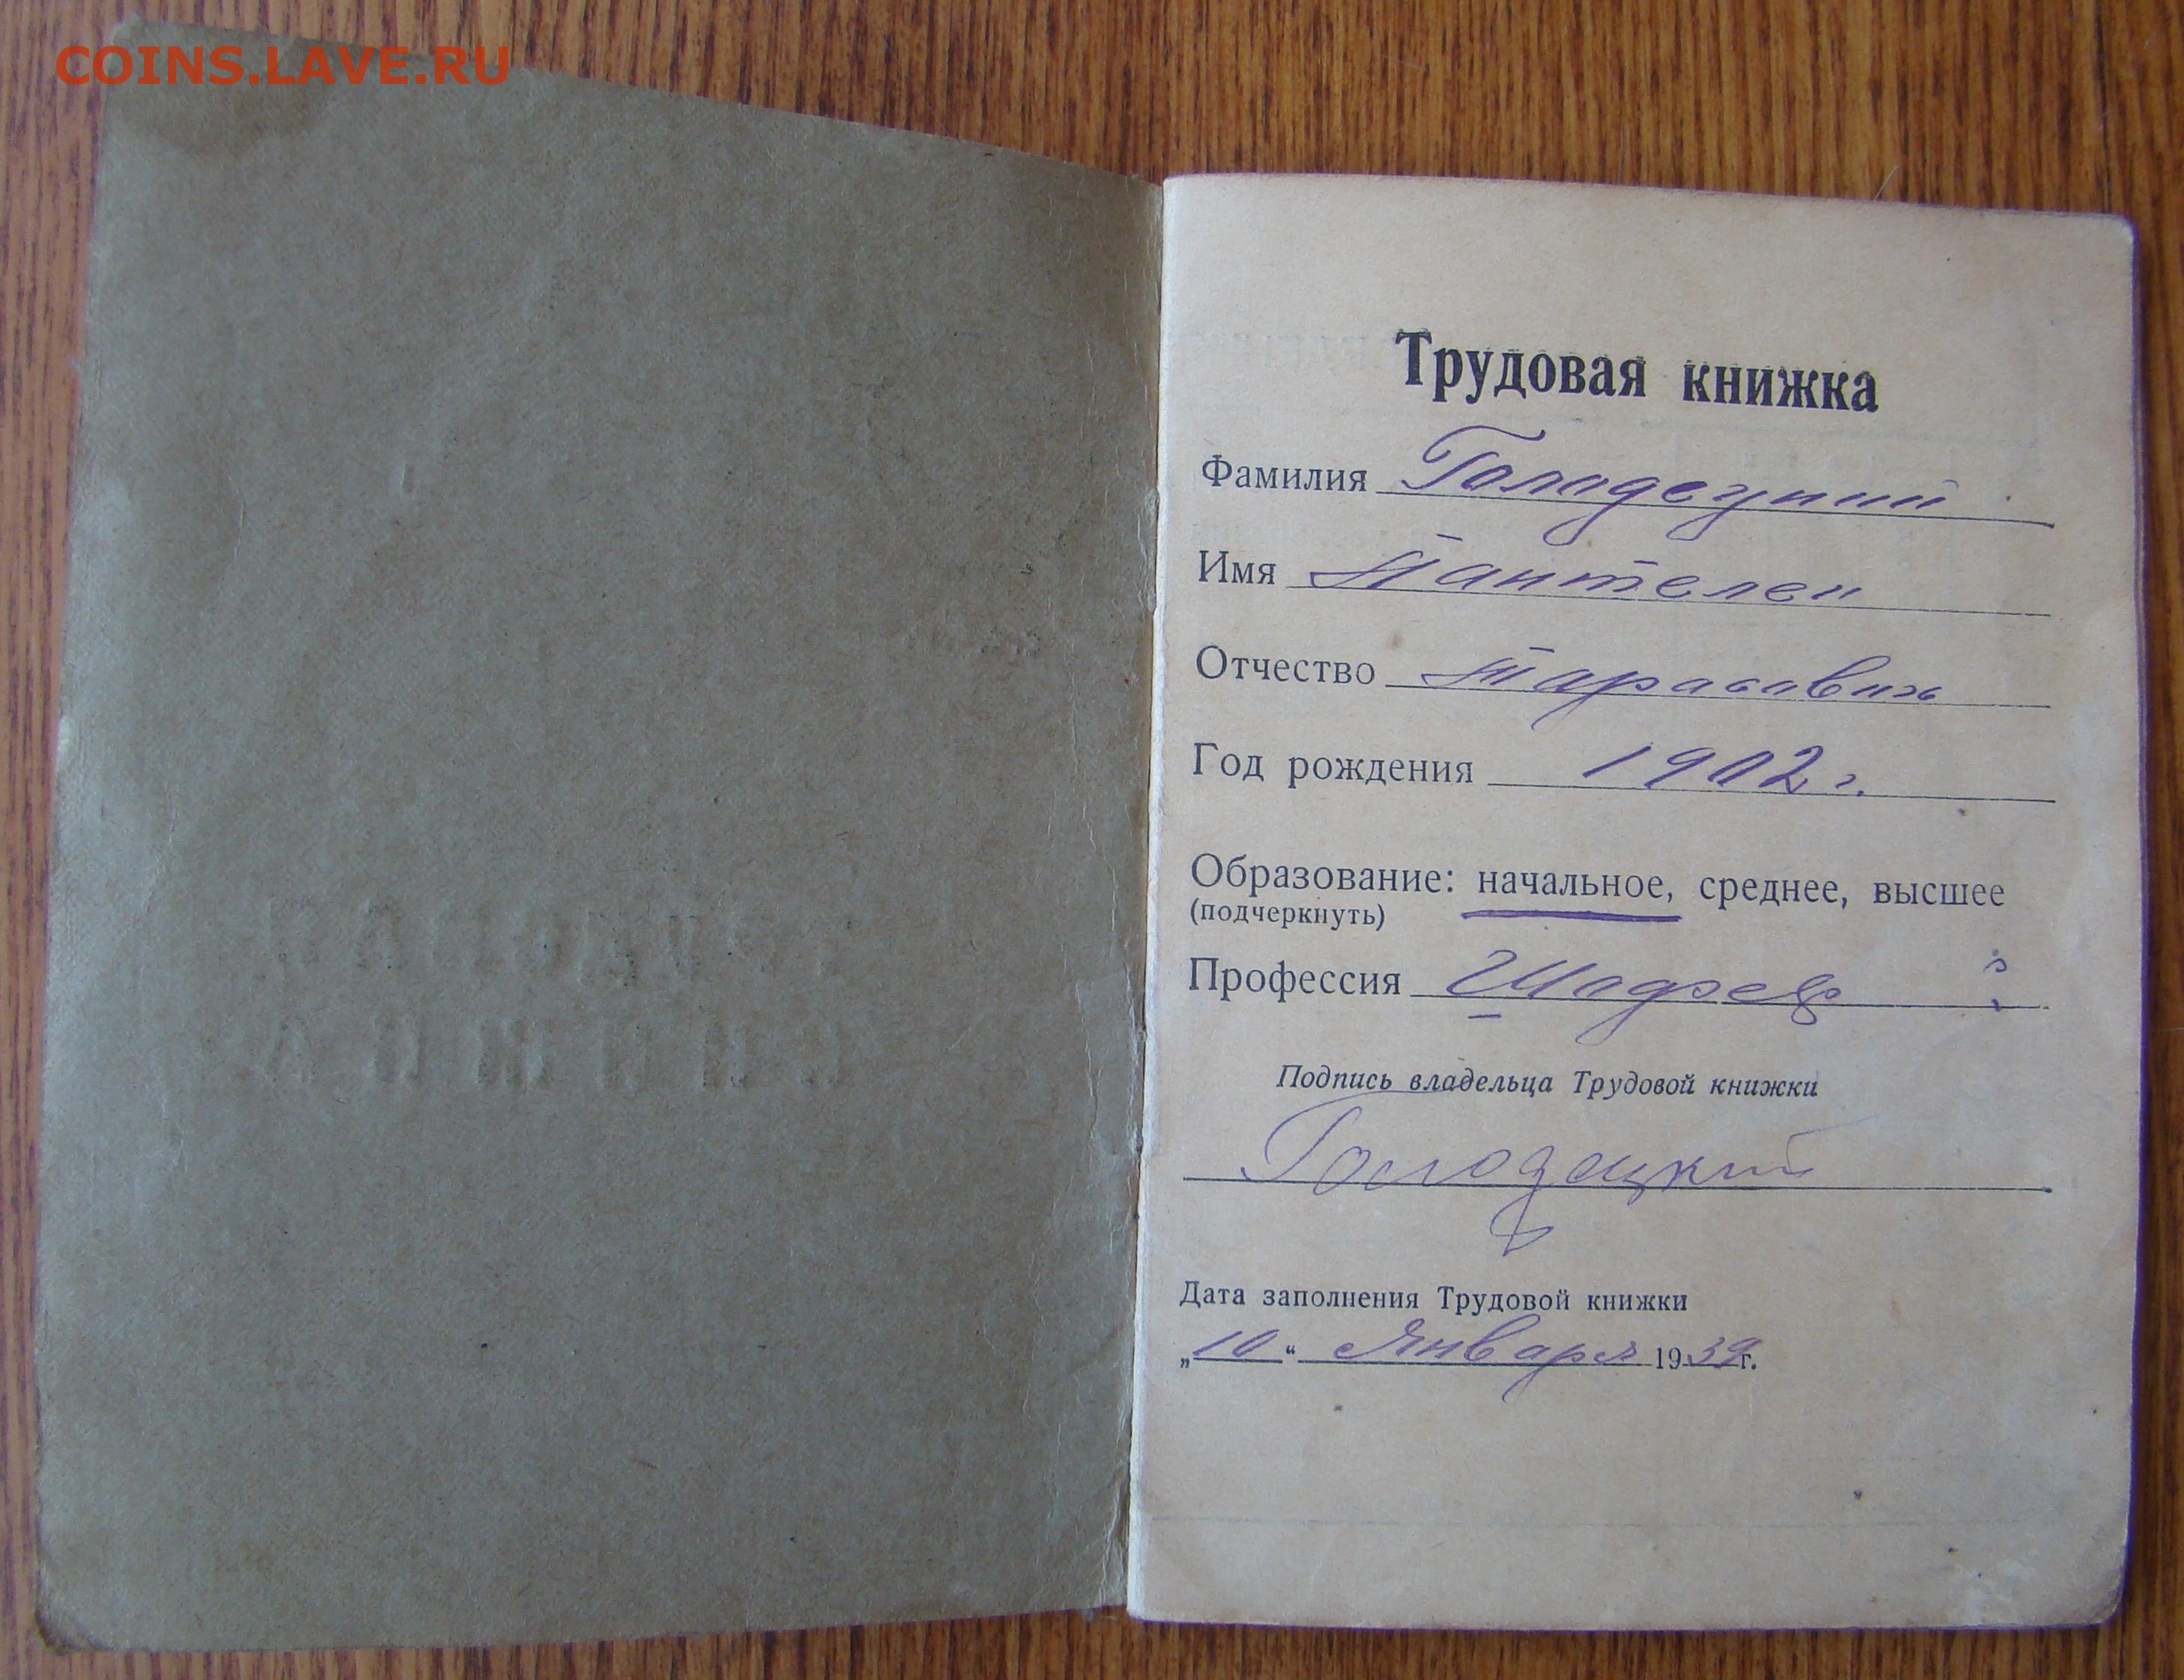 COINS.LAVE.RU
Трудовая книжка
Фамилия Голадецкий
Имя Пантелеи
Отчество Тарасавич
Год рождения 1902 г.
Образование: начальное, среднее, высшее
(подчеркнуть)
Профессия
Подпись владельца Трудовой книжки
Голодецкий
Дата заполнения Трудовой книжки
„10“ Января 1939г.